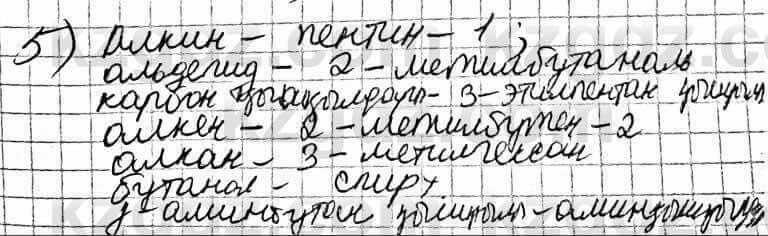 5) Алкин – пентин – 1;
альдегид – 2 – метилбутаналь
карбон қышқылдары – 3 – этилпентан қышқылы
алкен – 2 – метилбутен – 2
алкан – 3 – метилгексан
бутанол – спирт
γ – аминбутан қышқылы – аминқышқылы